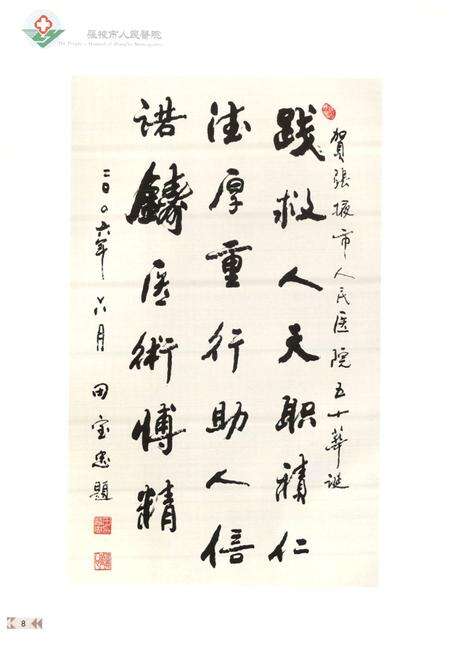 張掖市人民醫院
The People's Hospital of Zhangye Municipality
贺張掖市人民医院五十華诞
践救人天职積仁
德厚重行助人信
诺鑄医術博精
二〇〇六年六月 田宝忠题
8